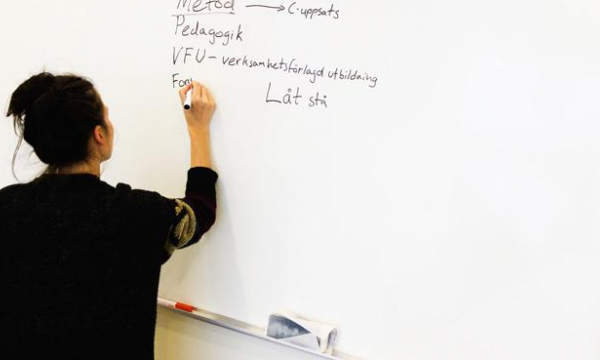 Metod → C-uppsats
Pedagogik
VFU - verksamhetsförlagd utbildning
For
Låt stå